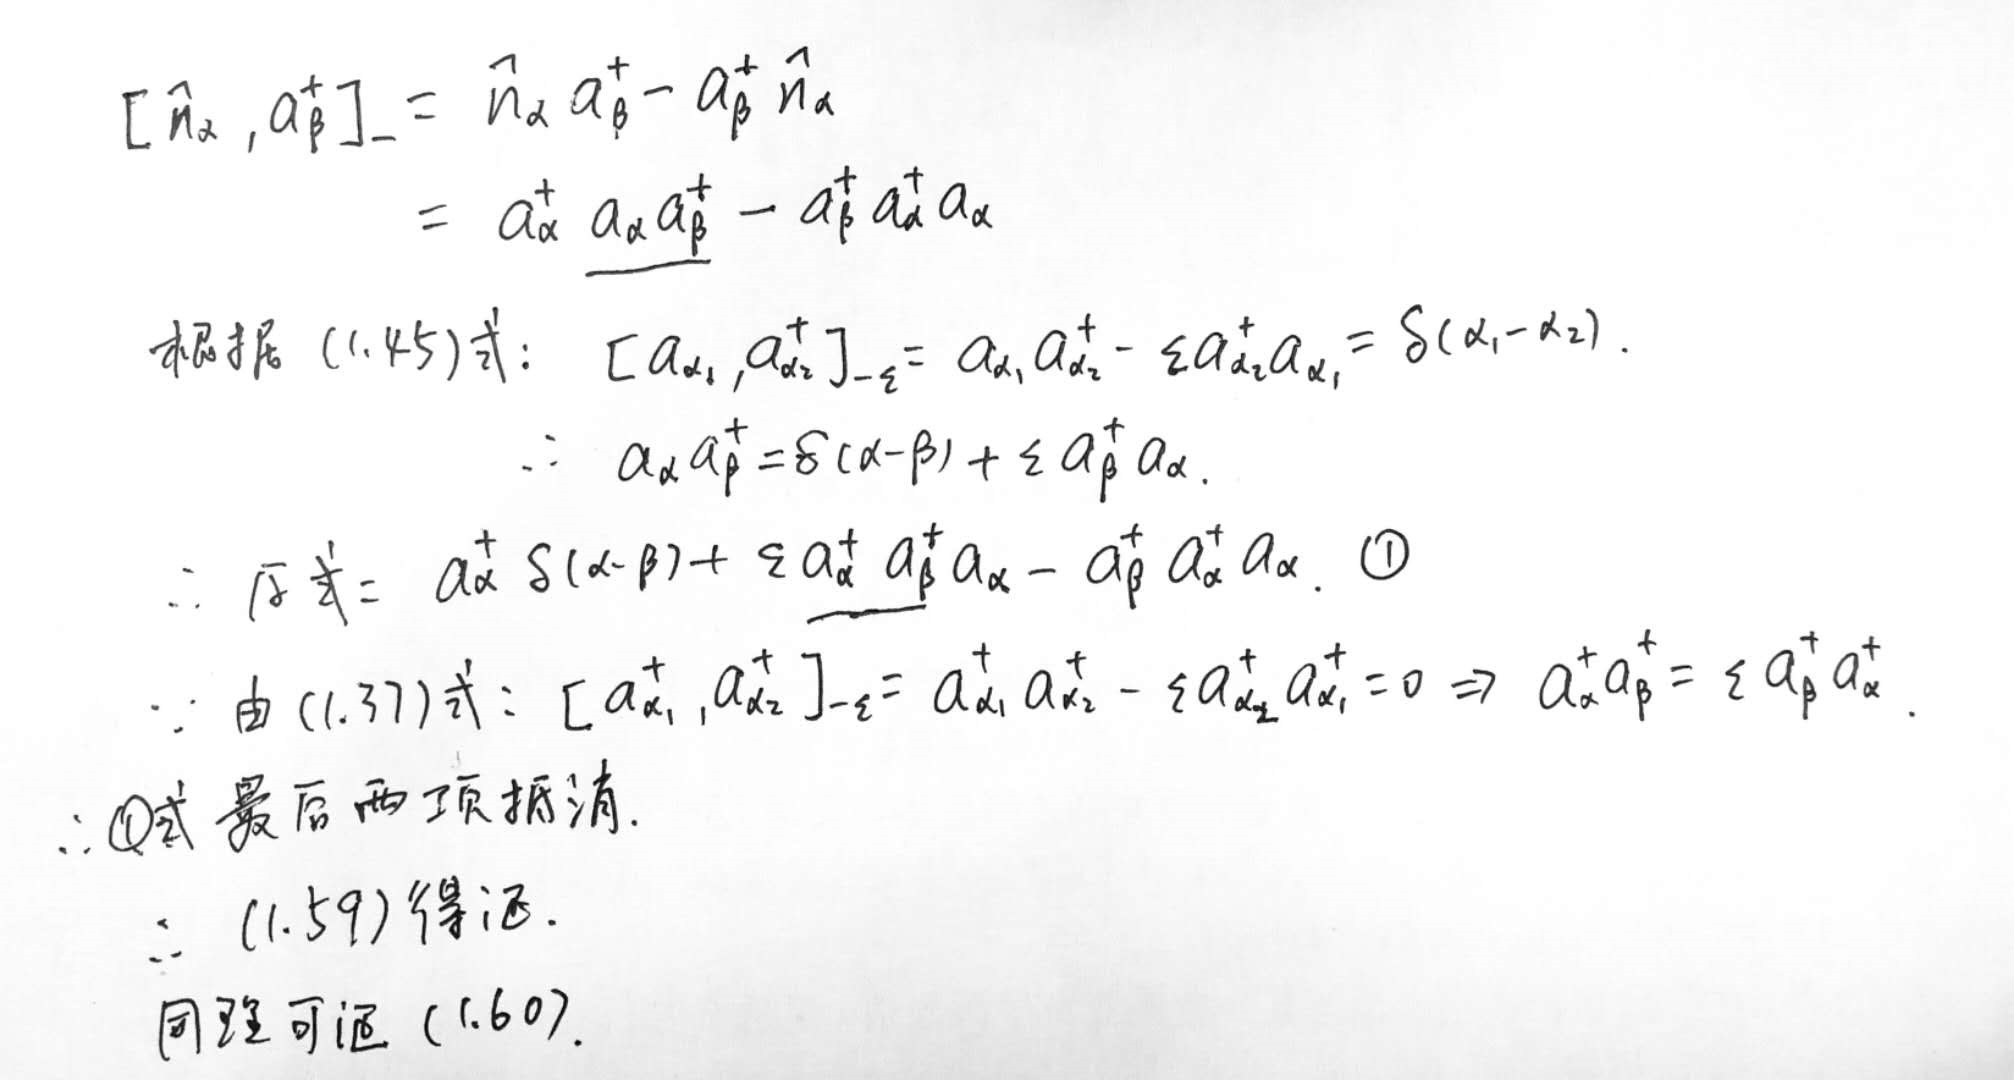 [n̂_α, a_β^+]_- = n̂_α a_β^+ - a_β^+ n̂_α
= a_α^+ a_α a_β^+ - a_β^+ a_α^+ a_α
根据 (1.45)式: [a_{α₁}, a_{α₂}^+]_{-ε} = a_{α₁} a_{α₂}^+ - ε a_{α₂}^+ a_{α₁} = δ(α₁-α₂).
∴ a_α a_β^+ = δ(α-β) + ε a_β^+ a_α.
∴ 原式= a_α^+ δ(α-β) + ε a_α^+ a_β^+ a_α - a_β^+ a_α^+ a_α. ①
∵ 由(1.37)式: [a_{α₁}^+, a_{α₂}^+]_{-ε} = a_{α₁}^+ a_{α₂}^+ - ε a_{α₂}^+ a_{α₁}^+ = 0 ⇒ a_α^+ a_β^+ = ε a_β^+ a_α^+.
∴ ①式最后两项抵消.
∴ (1.59)得证.
同理可证 (1.60).